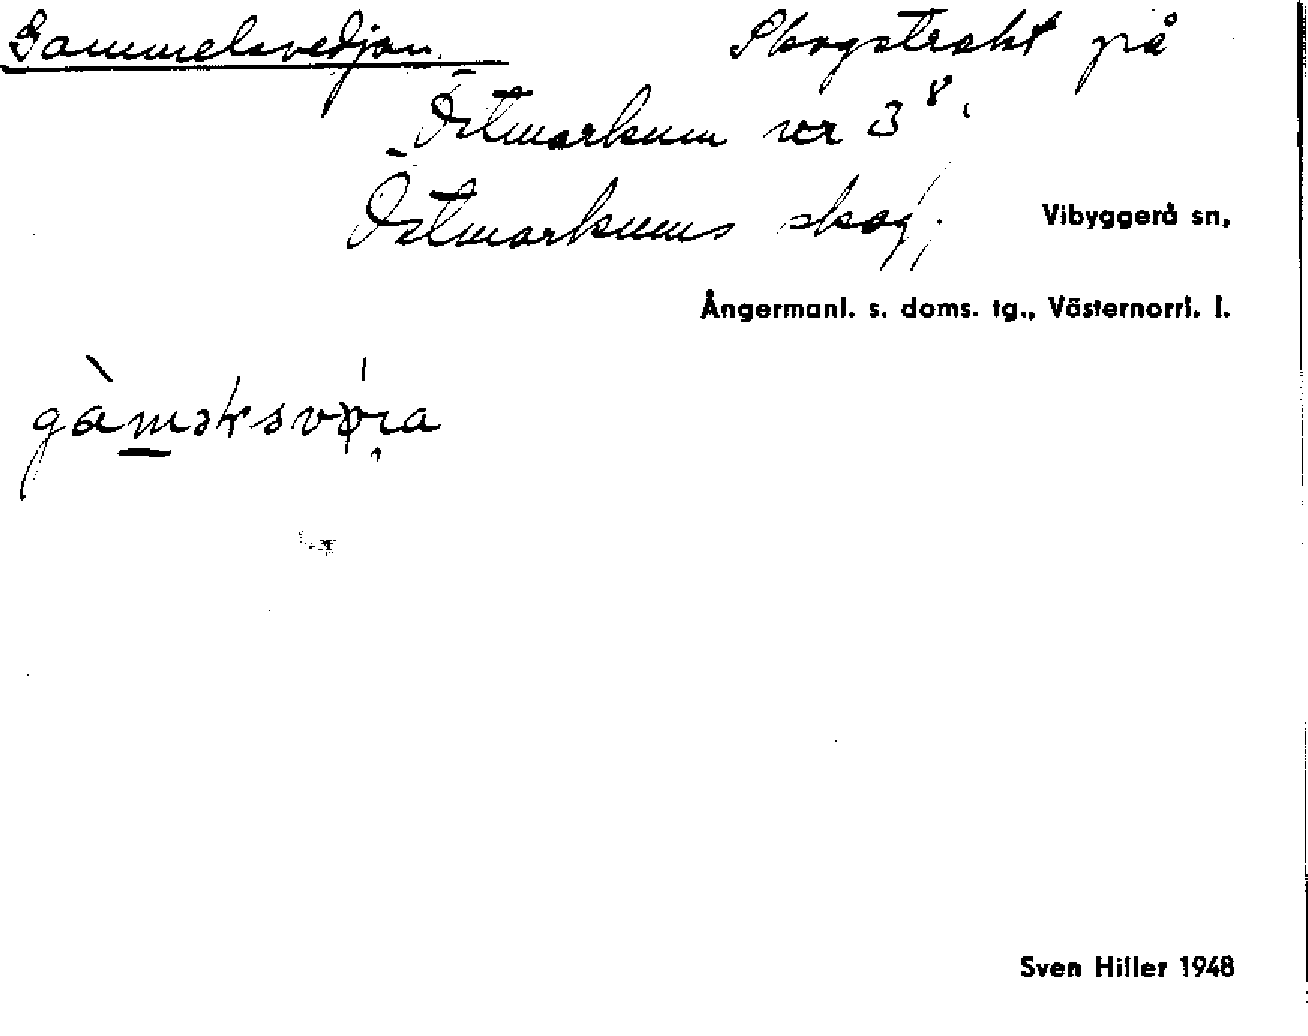 Gammelsvedjan. Skogstrakt på
Östmarkum nr 3⁸.
Östmarkums skog,
Vibyggerå sn,
Ångermanl. s. doms. tg., Västernorrl. l.
Sven Hiller 1948